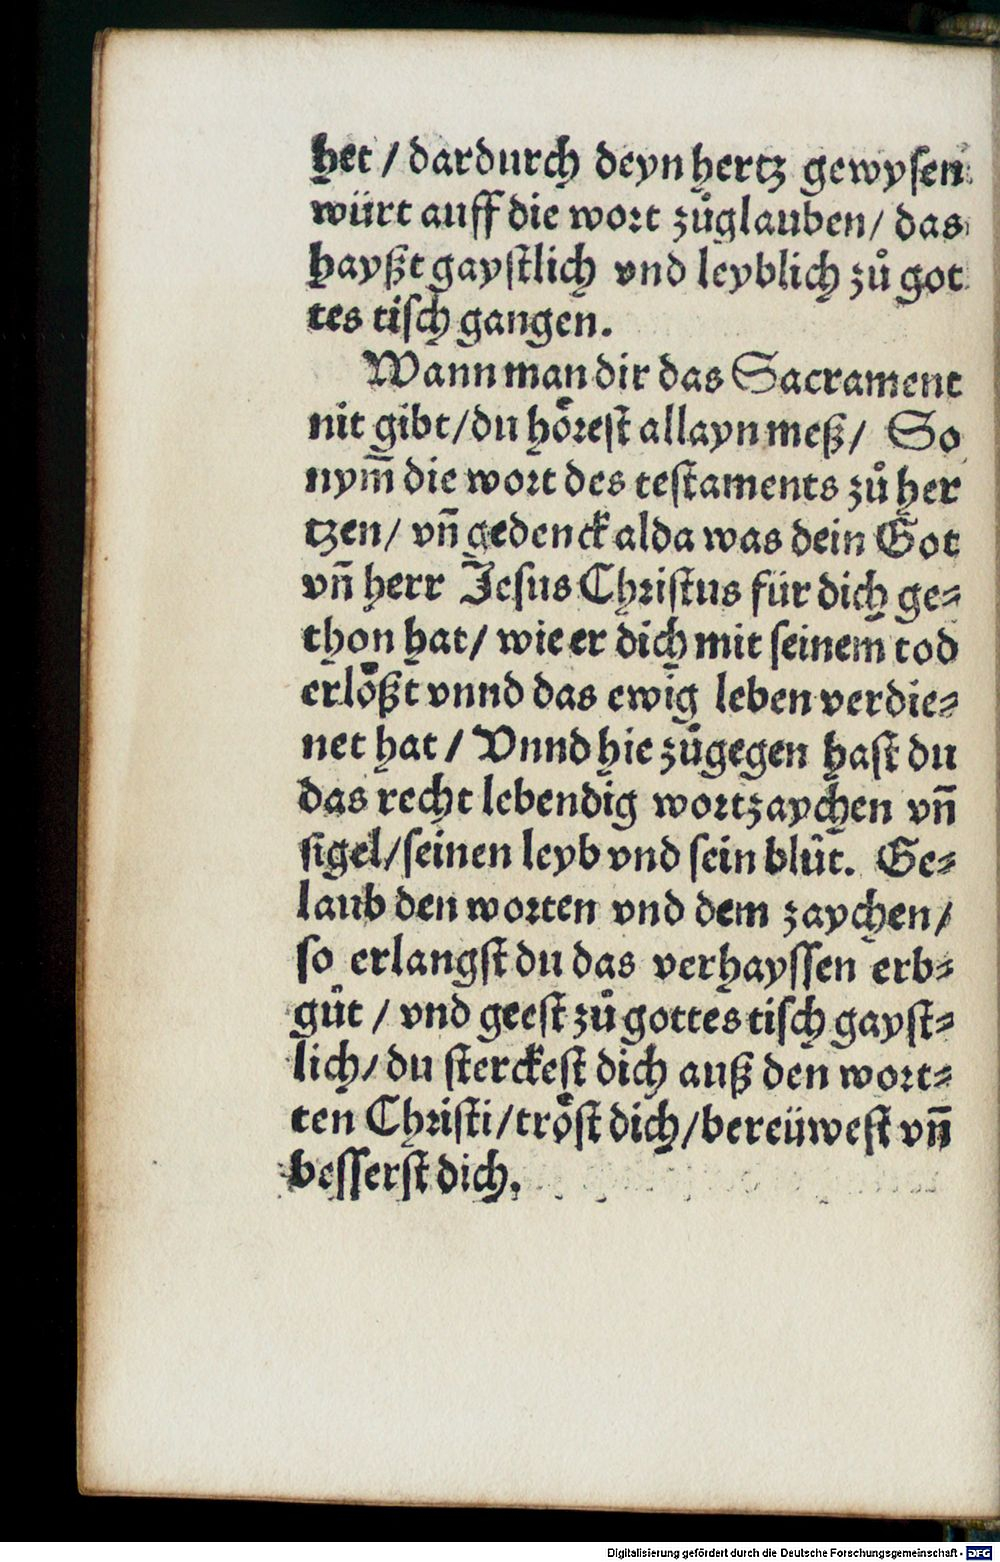 het / dardurch deyn hertz gewysen
würt auff die wort zůglauben / das
hayßt gaystlich vnd leyblich zů got
tes tisch gangen.
Wann man dir das Sacrament
nit gibt / du hoͤrest allayn meß / So
nym̃ die wort des testaments zů her
tzen / vñ gedenck alda was dein Got
vñ herr Jesus Christus für dich ge⸗
thon hat / wie er dich mit seinem tod
erloͤßt vnnd das ewig leben verdie⸗
net hat / Vnnd hie zůgegen hast du
das recht lebendig wortzaychen vñ
sigel / seinen leyb vnd sein blůt. Ge⸗
laub den worten vnd dem zaychen /
so erlangst du das verhayssen erb⸗
gůt / vnd geest zů gottes tisch gayst⸗
lich / du sterckest dich auß den wort⸗
ten Christi / troͤst dich / bereüwest vñ
besserst dich.
Digitalisierung gefördert durch die Deutsche Forschungsgemeinschaft - DFG